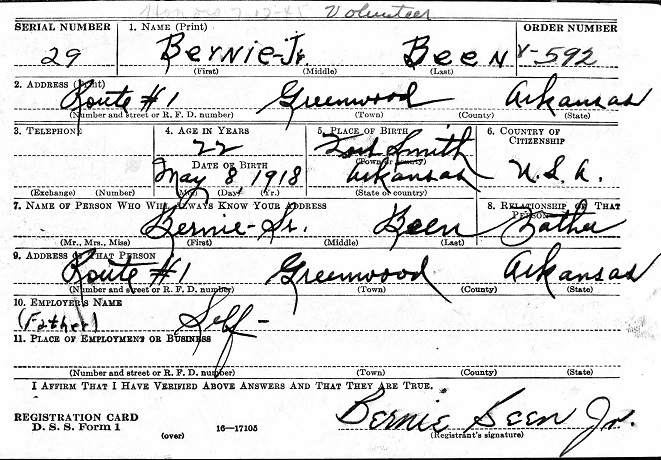 Volunteer
SERIAL NUMBER 1. NAME (Print) ORDER NUMBER
29 Bernie-Jr. Been V-592
(First) (Middle) (Last)
2. ADDRESS (Print)
Route #1 Greenwood Arkansas
(Number and street or R. F. D. number) (Town) (County) (State)
3. TELEPHONE 4. AGE IN YEARS 5. PLACE OF BIRTH 6. COUNTRY OF CITIZENSHIP
22 Fort Smith
(Town or county)
DATE OF BIRTH
May 8 1918 Arkansas U.S.A.
(Exchange) (Number) (Mo.) (Day) (Yr.) (State or country)
7. NAME OF PERSON WHO WILL ALWAYS KNOW YOUR ADDRESS 8. RELATIONSHIP OF THAT PERSON
Bernie-Sr. Been Father
(Mr., Mrs., Miss) (First) (Middle) (Last)
9. ADDRESS OF THAT PERSON
Route #1 Greenwood Arkansas
(Number and street or R. F. D. number) (Town) (County) (State)
10. EMPLOYER'S NAME
(Father) Self-
11. PLACE OF EMPLOYMENT OR BUSINESS
(Number and street or R. F. D. number) (Town) (County) (State)
I AFFIRM THAT I HAVE VERIFIED ABOVE ANSWERS AND THAT THEY ARE TRUE.
REGISTRATION CARD
D. S. S. Form 1 (over) 16—17105
Bernie Been Jr.
(Registrant's signature)